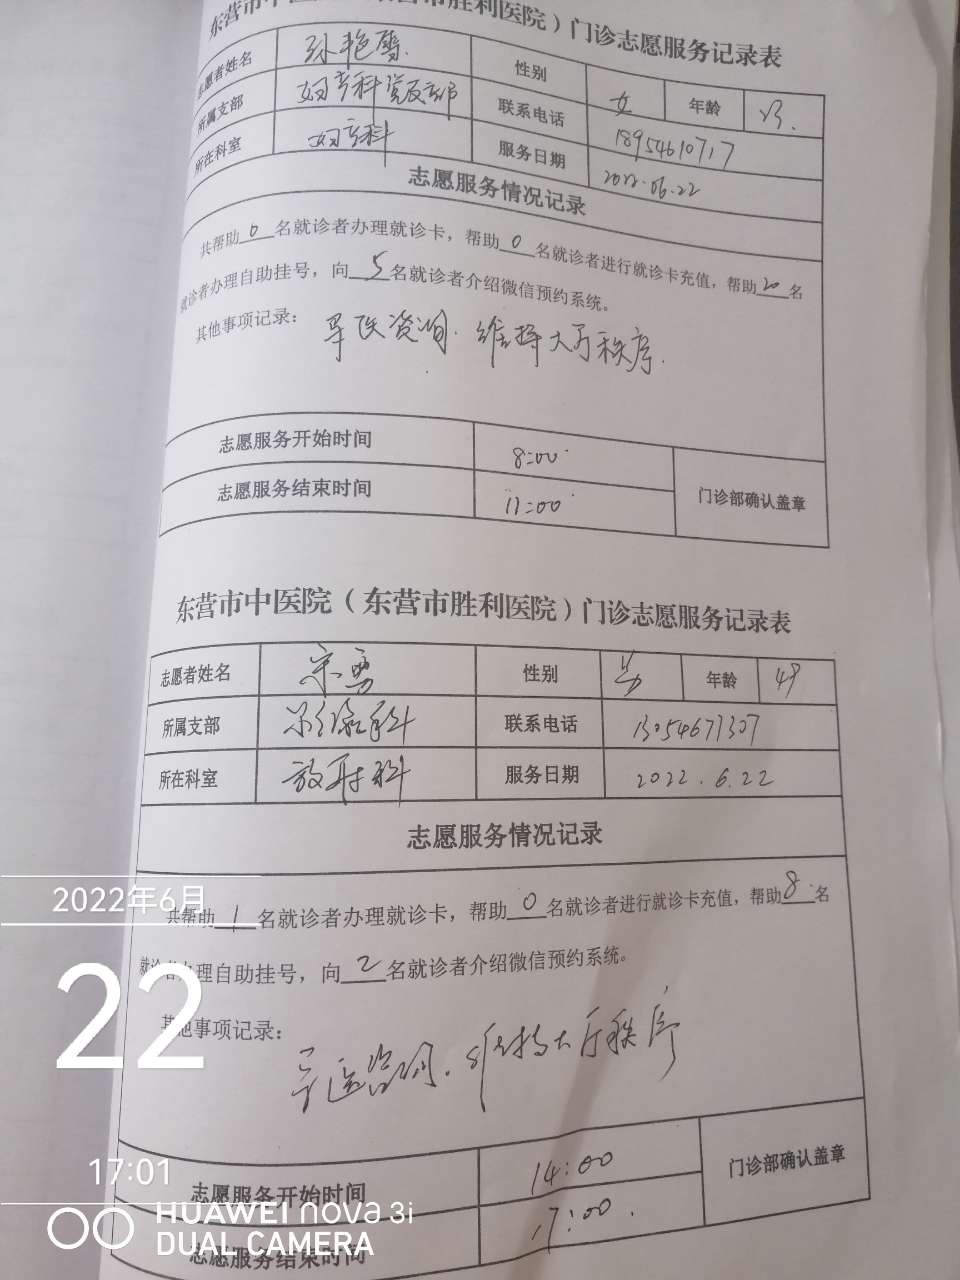 东营市中医院（东营市胜利医院）门诊志愿服务记录表
志愿者姓名 孙艳雪 性别 女 年龄
所属支部 妇产科党支部 联系电话 18954610717
所在科室 妇产科 服务日期 2022.06.22
志愿服务情况记录
共帮助 0 名就诊者办理就诊卡，帮助 0 名就诊者进行就诊卡充值，帮助 20 名
就诊者办理自助挂号，向 5 名就诊者介绍微信预约系统。
其他事项记录： 导医咨询.维持大厅秩序.
志愿服务开始时间 8:00
门诊部确认盖章
志愿服务结束时间 11:00
东营市中医院（东营市胜利医院）门诊志愿服务记录表
志愿者姓名 宋勇 性别 男 年龄 49
所属支部 影像科 联系电话 13054671307
所在科室 放射科 服务日期 2022.6.22
志愿服务情况记录
共帮助 1 名就诊者办理就诊卡，帮助 0 名就诊者进行就诊卡充值，帮助 8 名
就诊者办理自助挂号，向 2 名就诊者介绍微信预约系统。
其他事项记录：
导医咨询.维持大厅秩序
志愿服务开始时间 14:00
门诊部确认盖章
志愿服务结束时间 17:00.
2022年6月
22
17:01
HUAWEI nova 3i
DUAL CAMERA